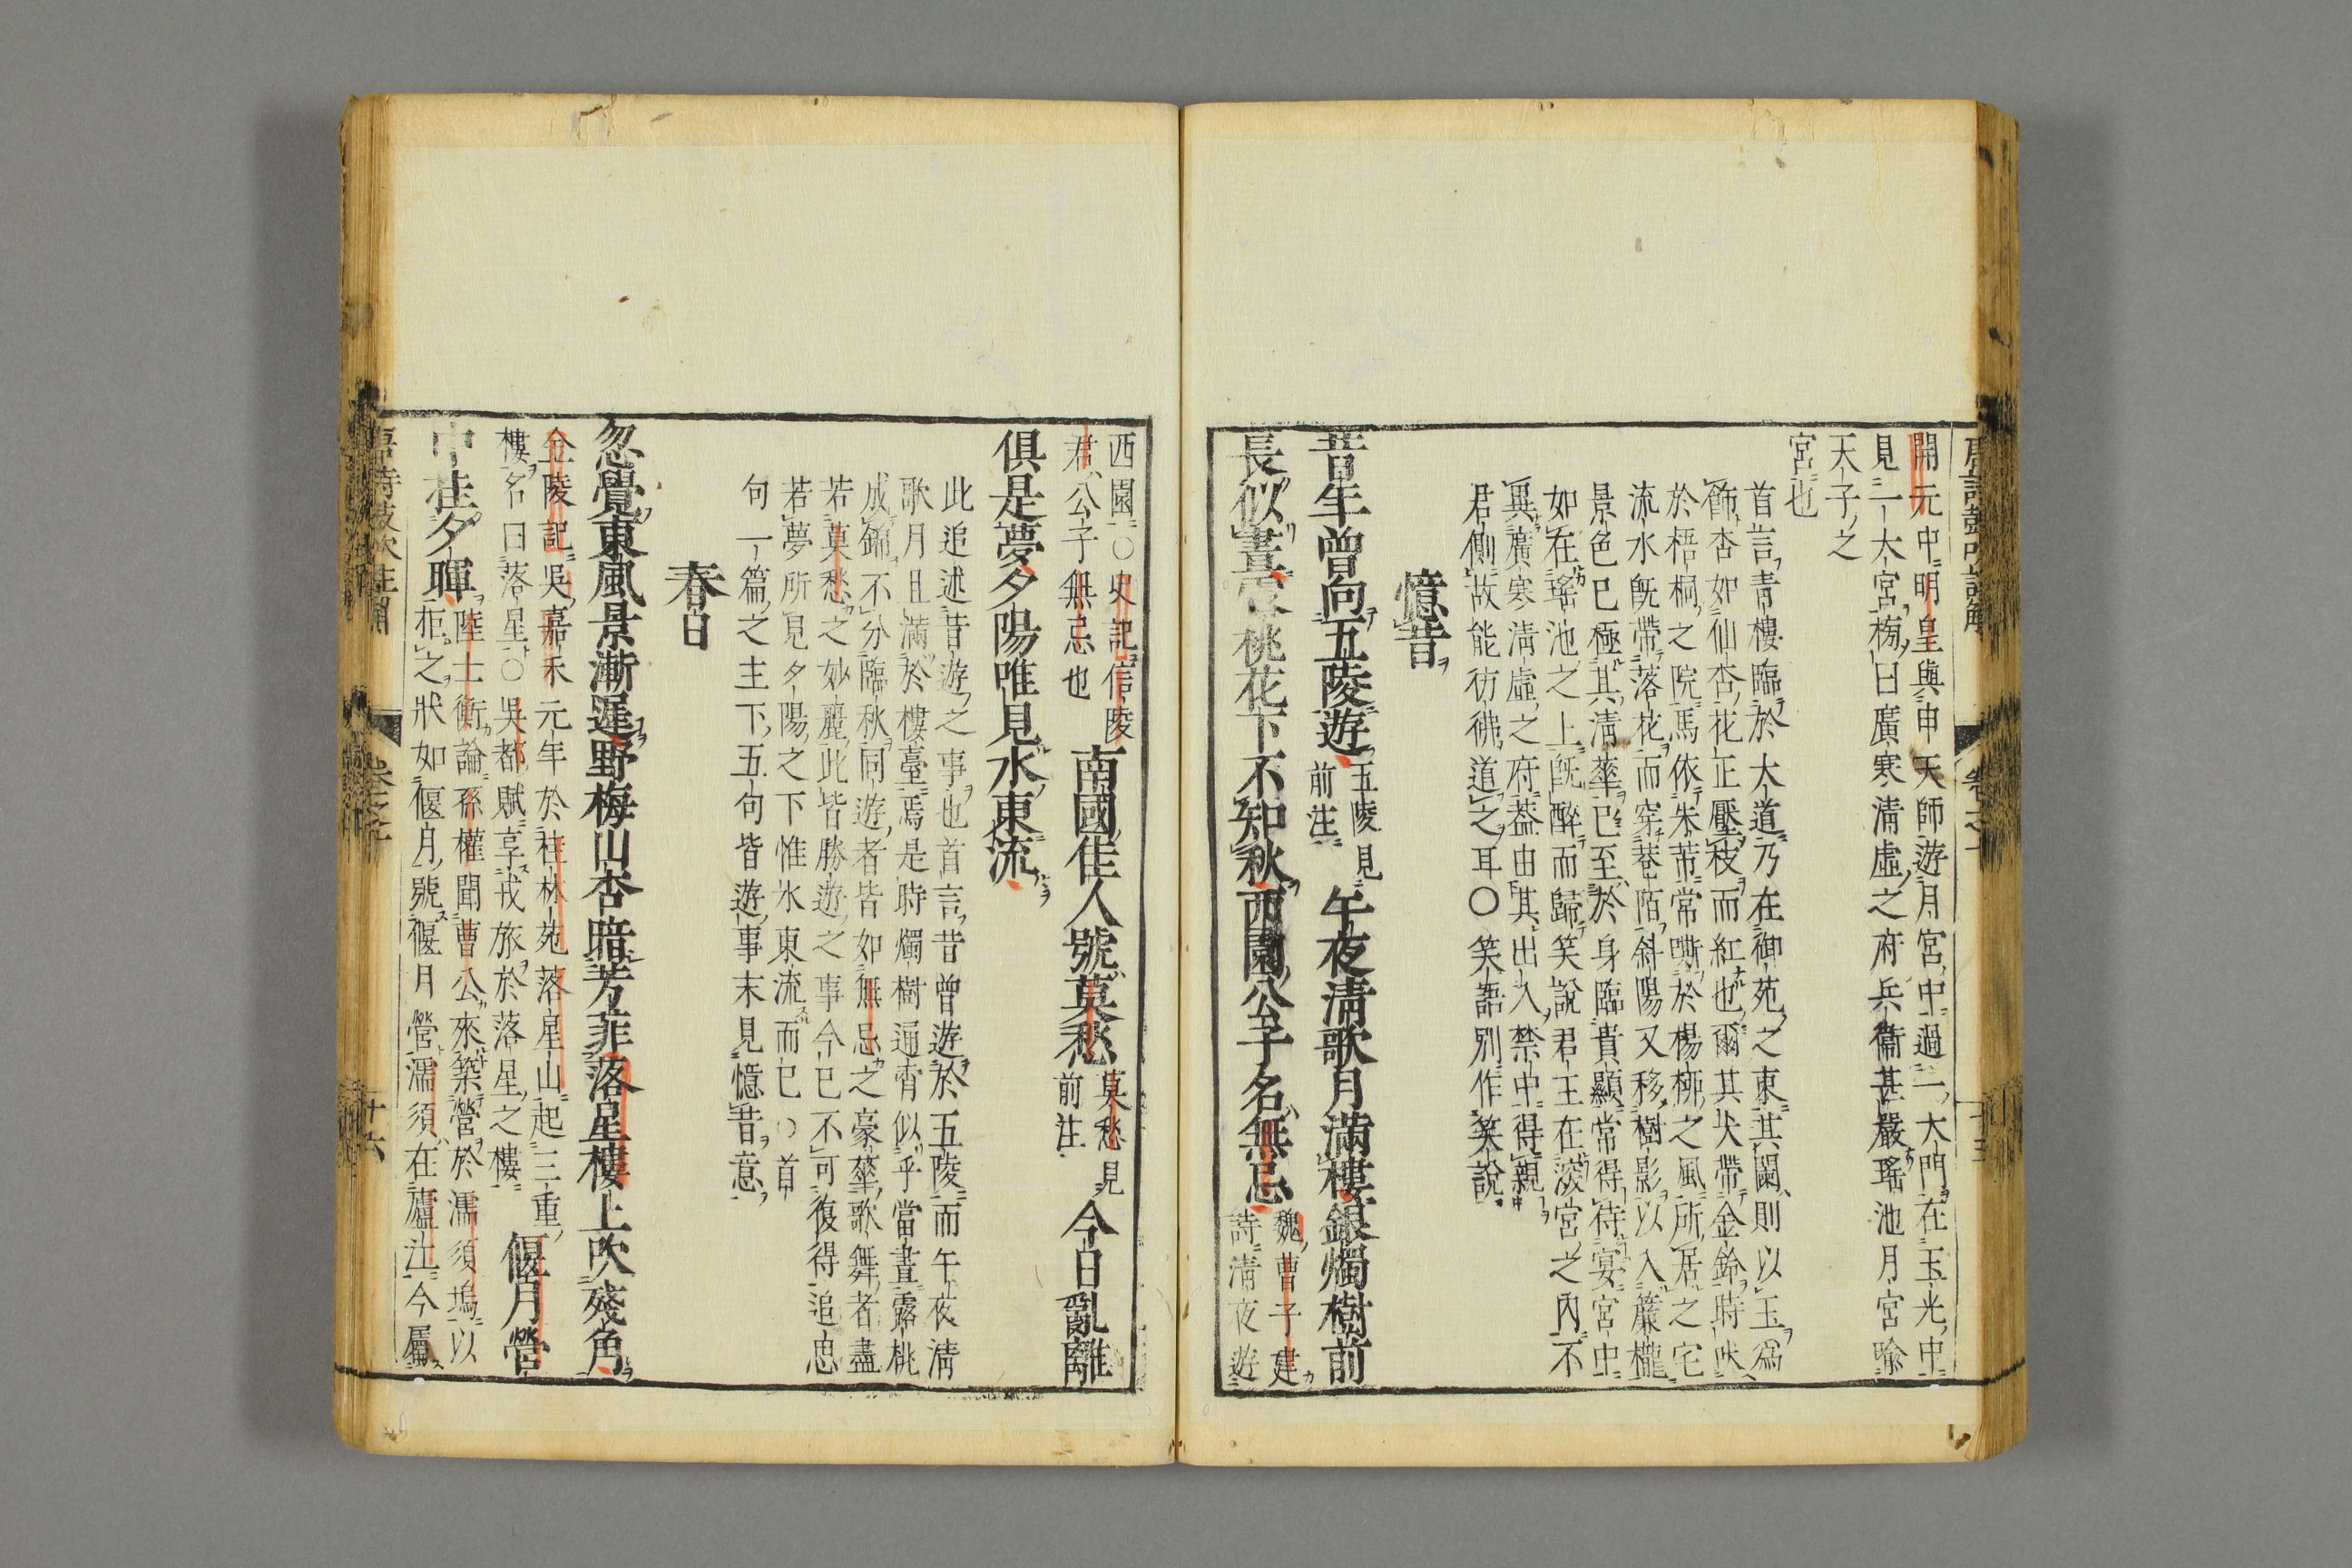 開元中明皇與申天師遊月宮中過一大門在玉光中
見一大宮榜曰廣寒清虛之府兵衛甚嚴瑤池月宮喩
天子之
宮也
首言青樓臨於大道乃在御苑之東其闌則以玉爲
飾杏如仙杏花正壓枝而紅也爾其犬帶金鈴時吠
於梧桐之院馬依朱芾常嘶於楊柳之風所居之宅
流水旣帶落花而穿巷陌斜陽又移樹影以入簾櫳
景色已極其淸華已至於身臨貴顯常得待宴宮中
如在瑤池之上旣醉而歸笑說君王在深宮之內不
異廣寒淸虛之府葢由其出入禁中得親
君側故能彷彿道之耳〇笑語別作笑說
憶昔
昔年曾向五陵遊五陵見前注午夜淸歌月滿樓銀燭樹前
長似晝露桃花下不知秋西園公子名無忌魏曹子建詩淸夜遊
西園〇史記信陵君公子無忌也南國佳人號莫愁莫愁見前注今日亂離
俱是夢夕陽唯見水東流
此追述昔遊之事也首言昔曾遊於五陵而午夜淸
歌月且滿於樓臺焉是時燭樹逼霄似乎當晝露桃
成錦不分臨秋同遊者皆如無忌之豪華歌舞者盡
若莫愁之妙麗此皆勝遊之事今已不可復得追思
若夢所見夕陽之下惟水東流而已〇首
句一篇之主下五句皆遊事末見憶昔意
春日
忽覺東風景漸遲野梅山杏暗芳菲落星樓上吹殘角
金陵記吳嘉禾元年於桂林苑落星山起三重
樓名曰落星〇吳都賦享戎旅於落星之樓偃月營
中桂夕暉陸士衡論孫權聞曹公來築營於濡須塢以
拒之狀如偃月號偃月營濡須在廬江今屬
卷之一
十六